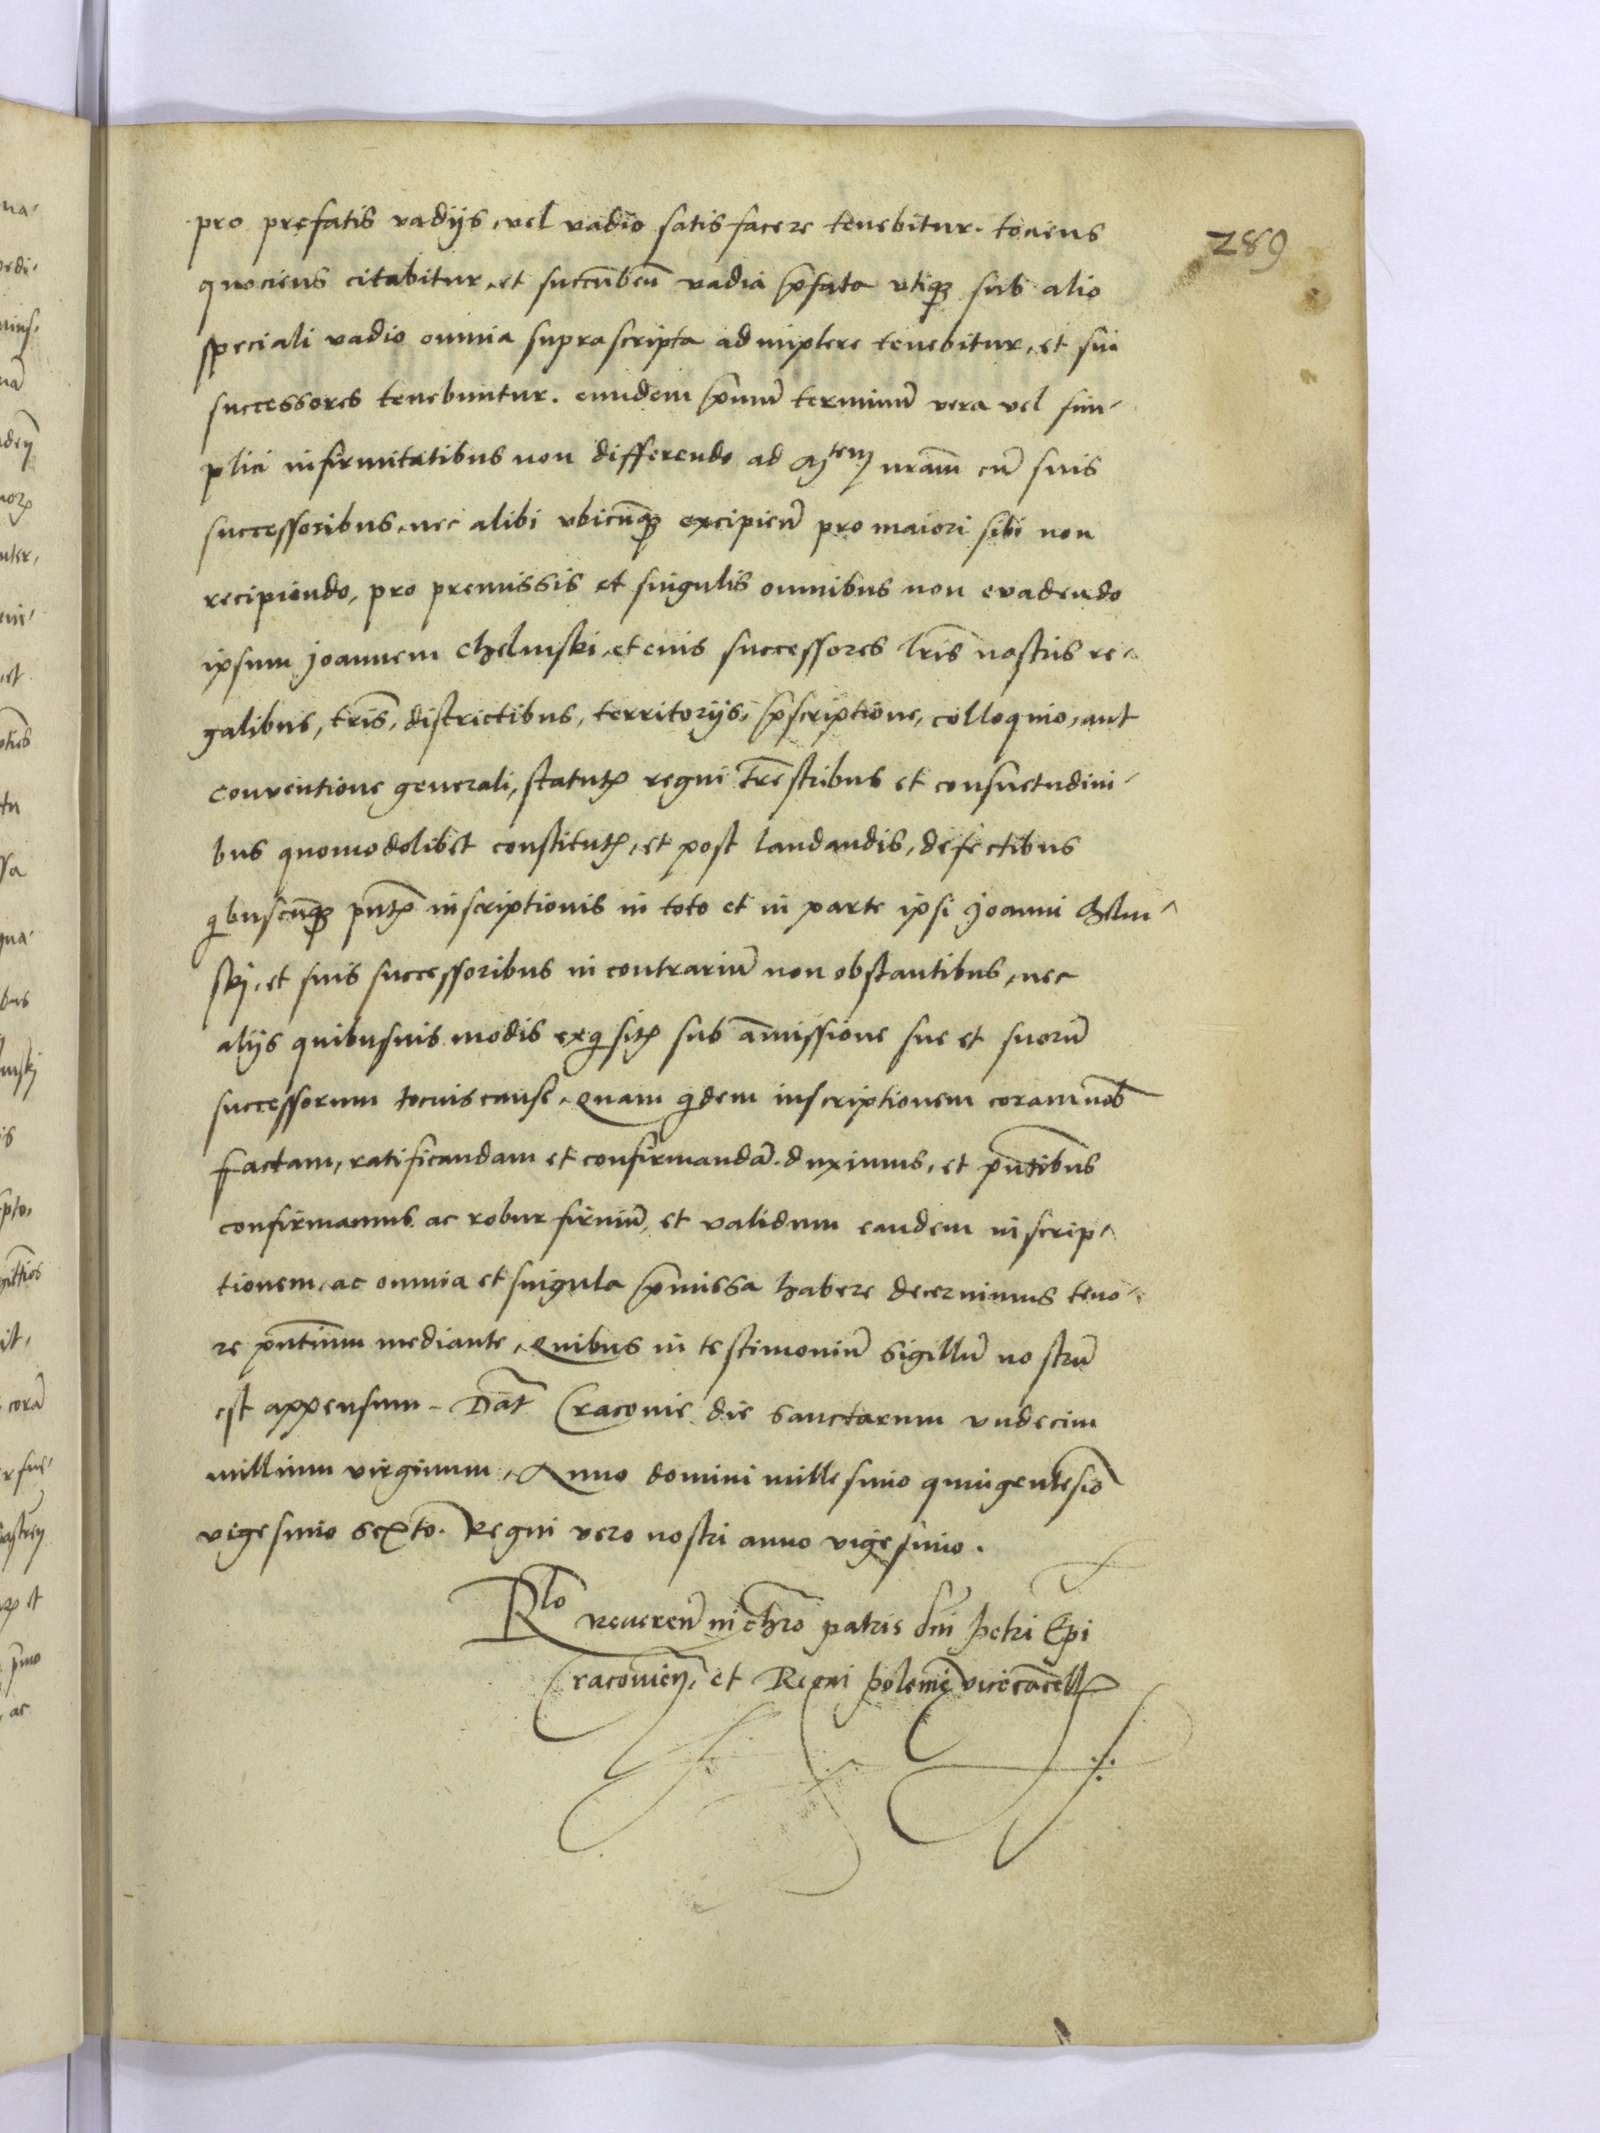 289
pro prefatis vadijs, vel vadio satisfacere tenebitur. tociens
quociens citabitur, et succubeñ vadia p̃fata vtiq3 sub alio
speciali vadio omnia suprascripta adimplere tenebitur, et sui
successores tenebuntur. eundem p̃nuũ terminũ vera vel sim-
plici infirmitatibus non differendo ad Mtem nram̃ cũ suis
successoribus, nec alibi vbicũq3 excipienď pro maiori sibi non
recipiendo, pro premissis et singulis omnibus non evadendo
ipsum joannem Chelmski, et eius successores lris̃ nostris re-
galibus, tris̃, districtibus, territorijs, p̃scriptione, colloquio, aut
conventione generali, statutꝭ regni tre̴stribus et consuetudini-
bus quomodolibet constitutꝭ, et post laudandis, defectibus
qibuscũq3 pn̄tꝭ inscriptionis in toto et in parte ipsi Joanni Chelm-
skj, et suis successoribus in contrariũ non obstantibus, nec
alijs quibusuis modis exqisitꝭ sub am̃issione sue et suorũ
successorum tocius cause, Quam qidem inscriptionem coram nob̃
factam, ratificandam et confirmandã duximus, et pñtibus
confirmamus, ac robur firmũ, et validum eandem inscrip-
tionem, ac omnia et singula p̃missa habere decernimus teno-
re pñtium mediante, Quibus in testimoniũ sigillũ nostrũ
est appensum. Dat̃ Cracovie die sanctarum vndecim
millium virginum, Anno domini millesimo quingentesiõ
vigesimo sexto. Regni vero nostri anno vigesimo.
Rlo Reuerenď in chr̃o patris dñi Petri Ep̃i
Cracovień, et Regni Polonie vicecãcellꝭ